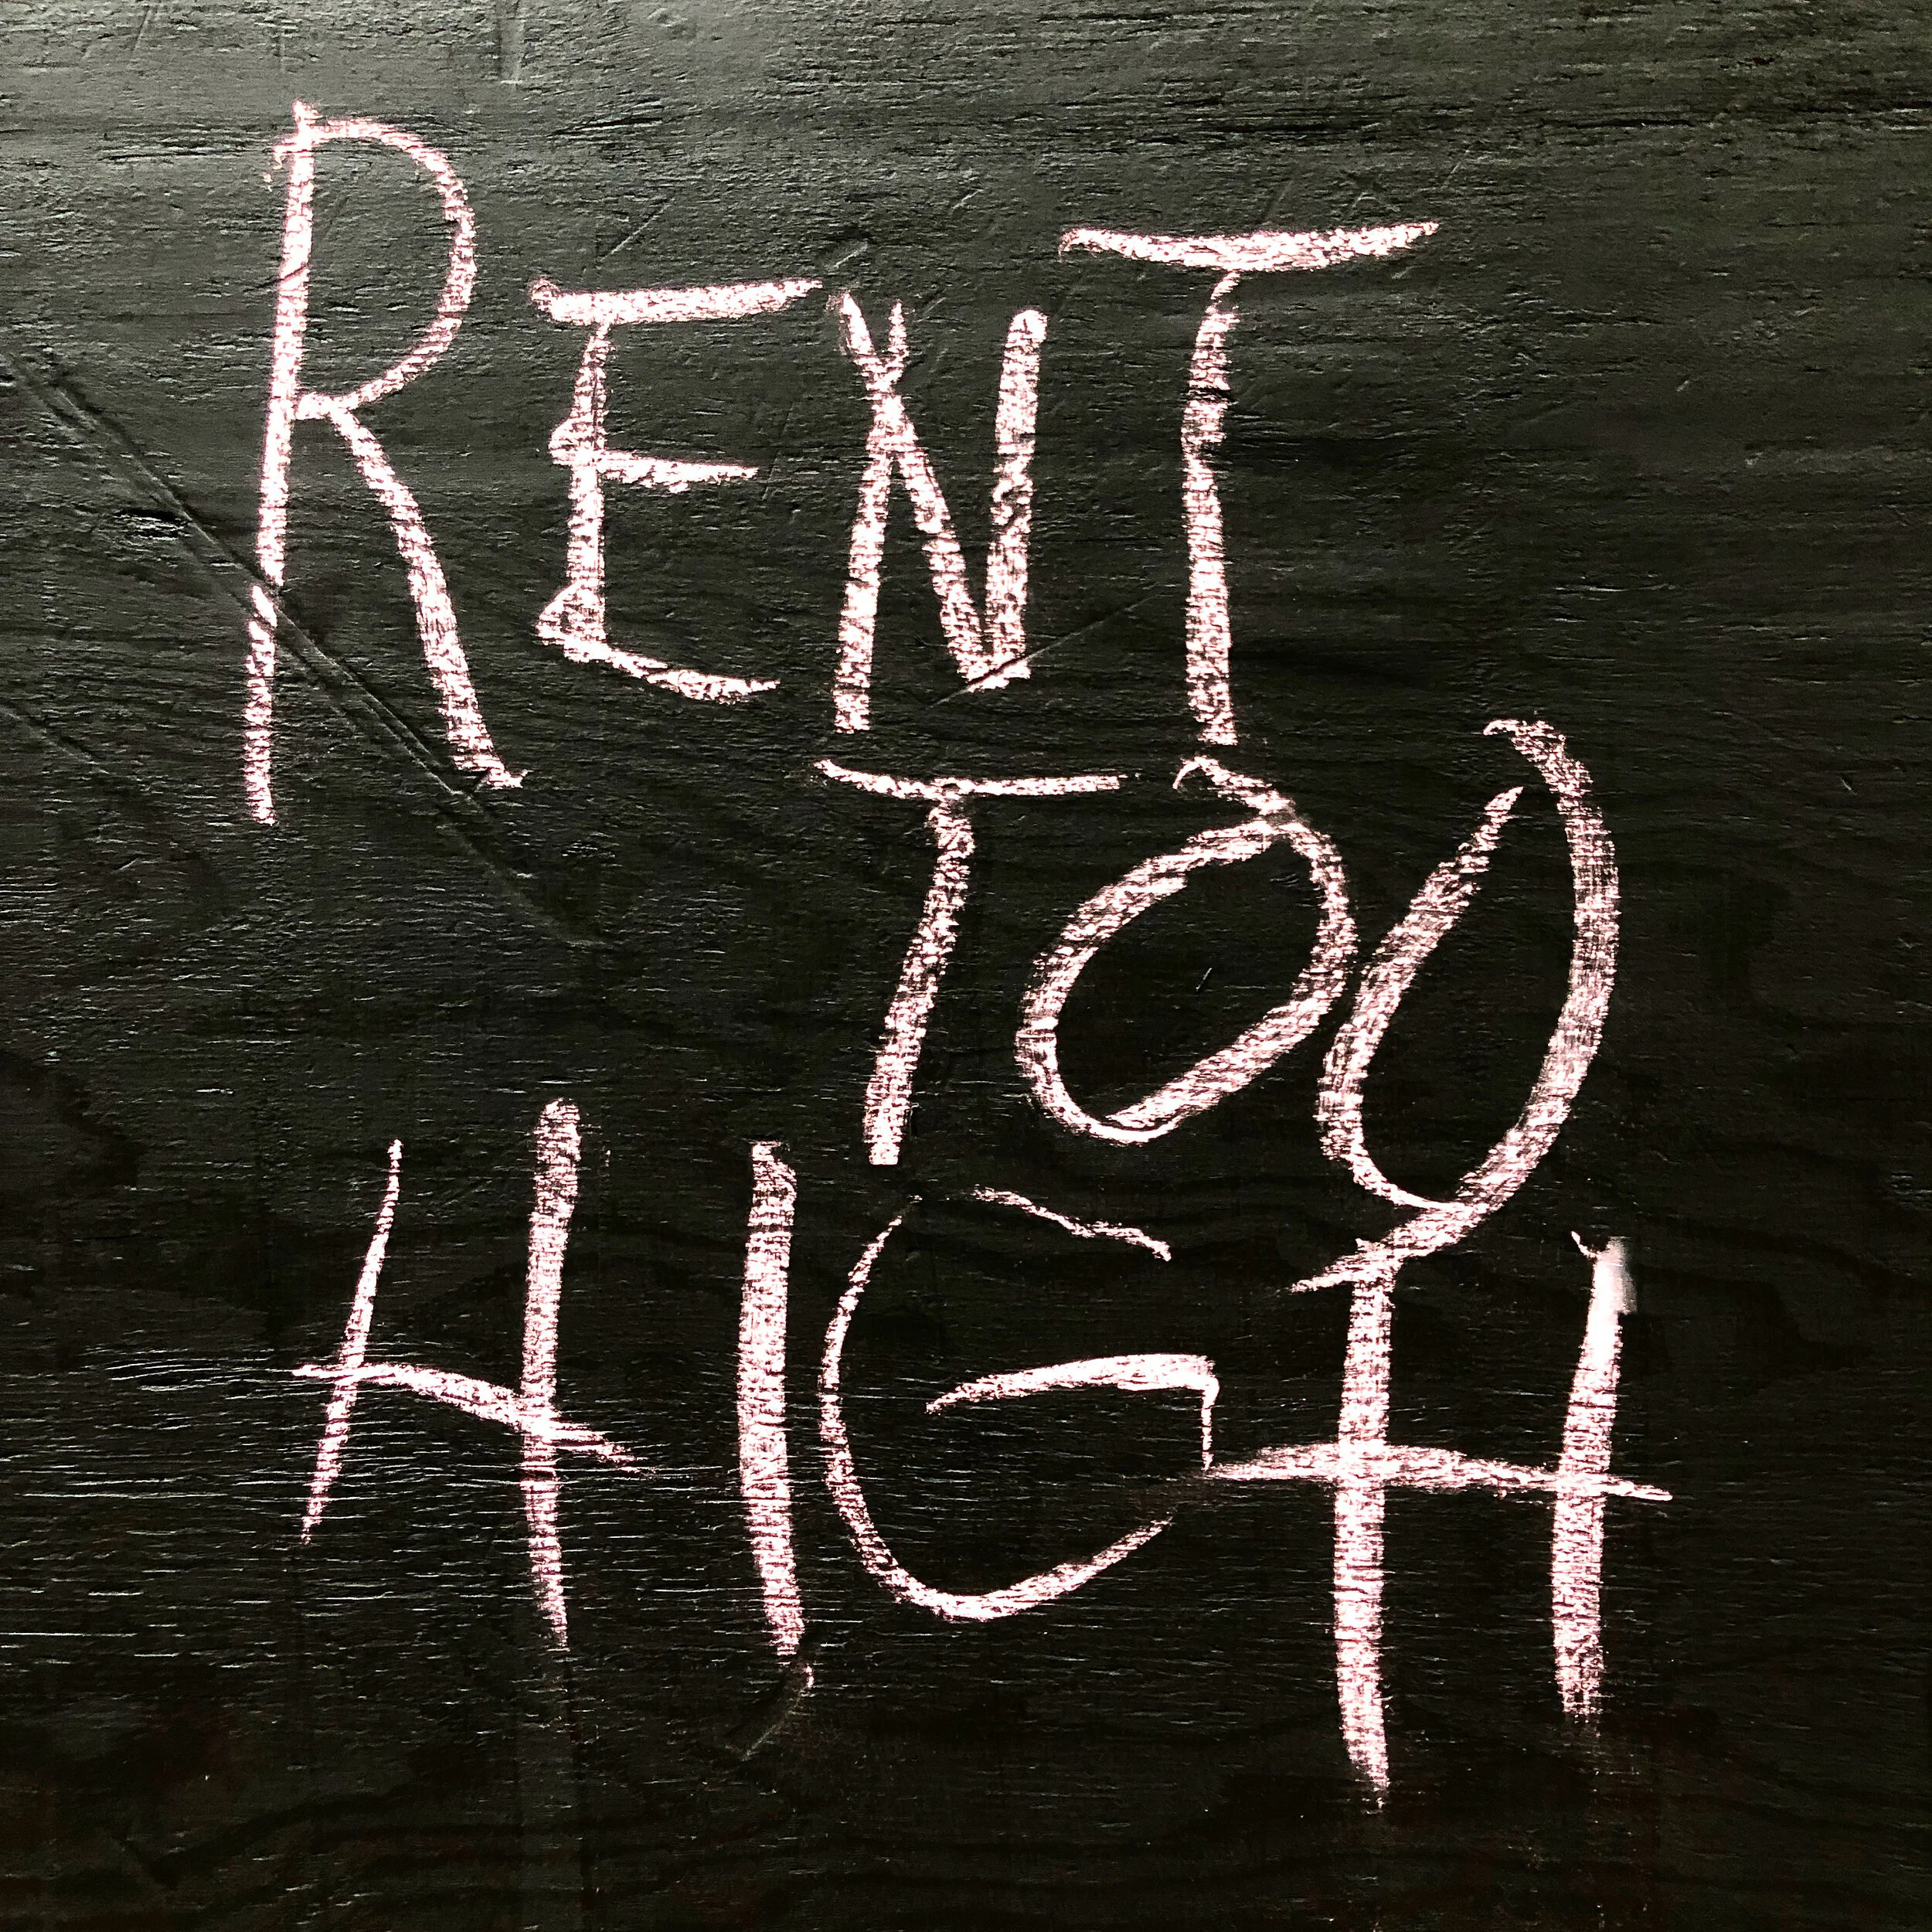 RENT
TOO
HIGH